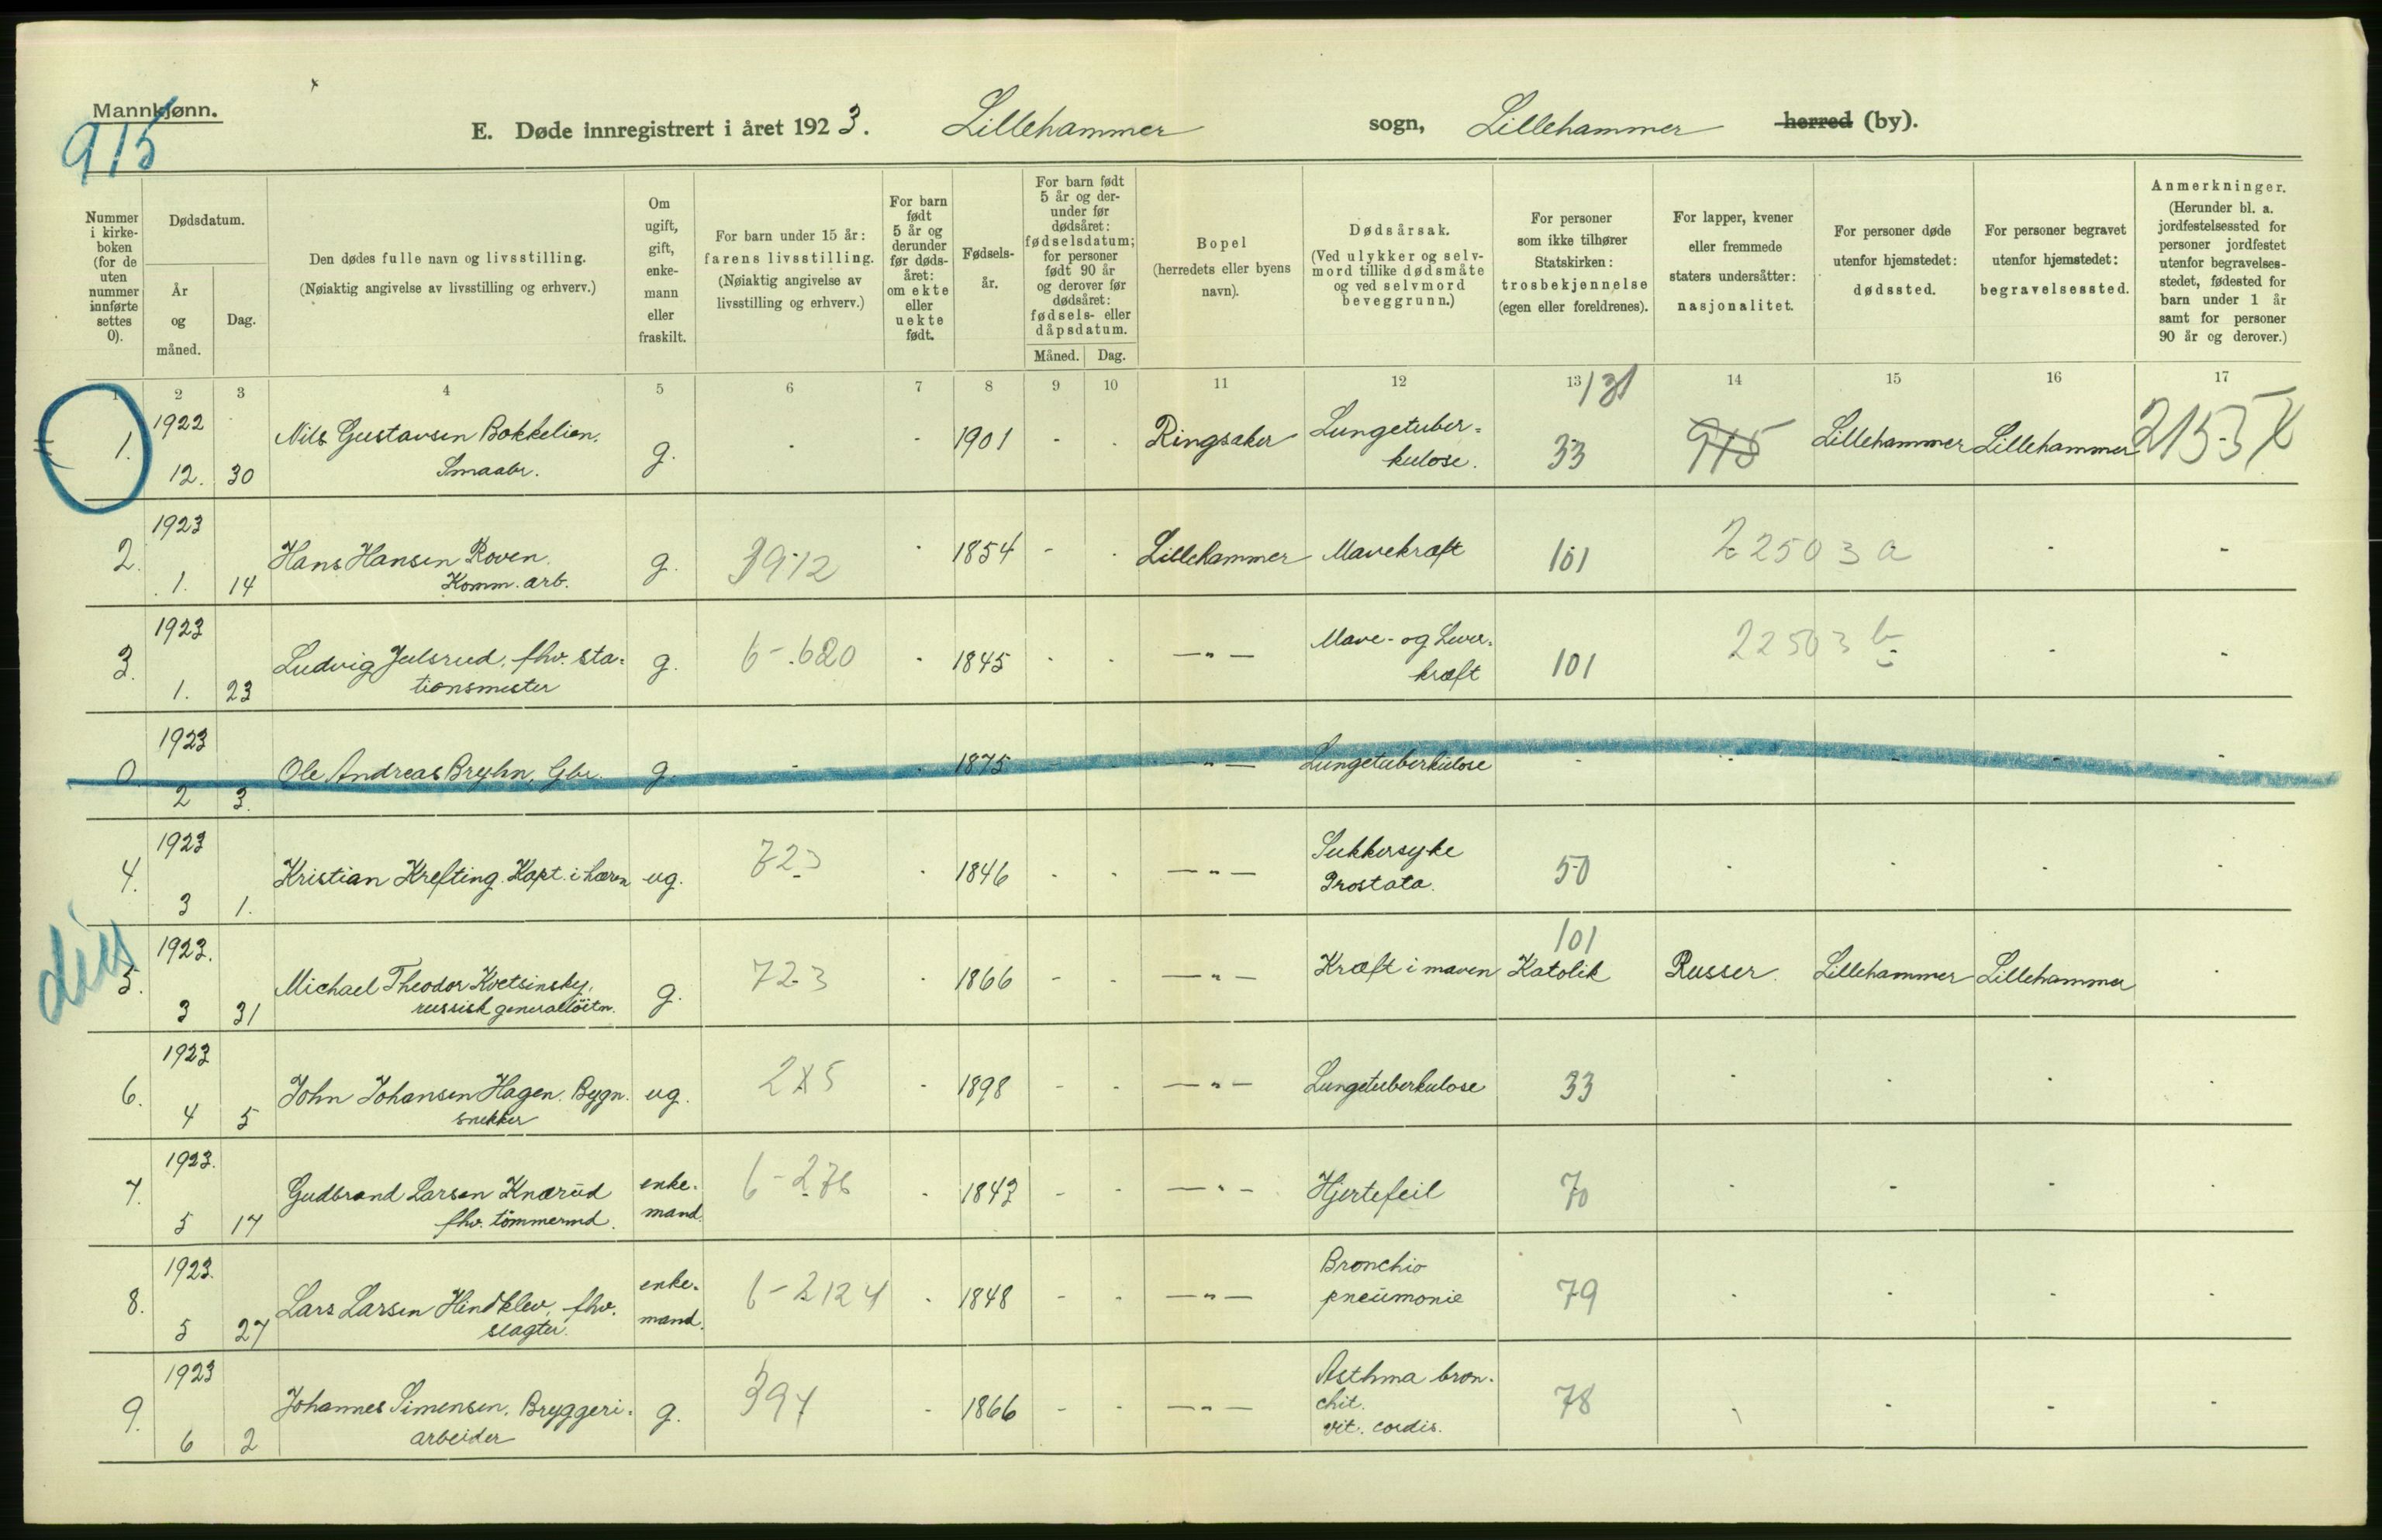 Mannkjønn.
915
E. Døde innregistrert i året 1923. Lillehammer sogn, Lillehammer herred (by).
Nummer i kirke-boken (for de uten nummer innførte settes 0).
Dødsdatum.
År og måned.
Dag.
Den dødes fulle navn og livsstilling.
(Nøiaktig angivelse av livsstilling og erhverv.)
Om ugift, gift, enke-mann eller fraskilt.
For barn under 15 år: farens livsstilling.
(Nøiaktig angivelse av livsstilling og erhverv.)
For barn født 5 år og derunder før døds-året: om ekte eller uekte født.
Fødsels-år.
For barn født 5 år og der-under før dødsåret: fødselsdatum; for personer født 90 år og derover før dødsåret: fødsels- eller dåpsdatum.
Måned. Dag.
Bopel (herredets eller byens navn).
Dødsårsak.
(Ved ulykker og selv-mord tillike dødsmåte og ved selvmord beveggrunn.)
For personer som ikke tilhører Statskirken: trosbekjennelse (egen eller foreldrenes).
For lapper, kvener eller fremmede staters undersåtter: nasjonalitet.
For personer døde utenfor hjemstedet: dødssted.
For personer begravet utenfor hjemstedet: begravelsessted.
Anmerkninger.
(Herunder bl. a. jordfestelsessted for personer jordfestet utenfor begravelses-stedet, fødested for barn under 1 år samt for personer 90 år og derover.)
1 2 3 4 5 6 7 8 9 10 11 12 13 14 15 16 17
131
1. 1922 12. 30 Nils Gustavsen Bakkelien. Smaabr. g. - - 1901 - - Ringsaker Lungetuber=kulose. 33 915 Lillehammer Lillehammer 2153 X
2. 1923 1. 14 Hans Hansen Roven. Komm. arb. g. 3912 - 1854 - - Lillehammer Mavekræft 101 22503 a - -
3. 1923 1. 23 Ludvig Julsrud, fhv. sta=tionsmester g. 6-620 - 1845 - - —"— Mave- og Lever=kræft 101 22503 b - -
0 1923 2 3. Ole Andreas Bryhn, Gbr. g. - - 1875 - - —"— Lungetuberkulose - - - - -
4. 1923 3 1. Kristian Krefting. Kapt. i hæren ug. 723 - 1846 - - —"— Sukkersyke Prostata. 50 - - - -
dis
5. 1923. 3 31 Michael Theodor Kvetsinsky, russisk generalløitn. g. 723 - 1866 - - —"— Kræft i maven 101 Katolik Russer. Lillehammer Lillehammer -
6. 1923 4 5 John Johansen Hagen. Bygn. snekker ug. 2X5 - 1898 - - —"— Lungetuberkulose 33 - - - -
7. 1923. 5 17 Gudbrand Larsen Knærud fhv. tømmermd. enke-mand. 6-276 - 1843 - - —"— Hjertefeil 70 - - - -
8. 1923. 5 27 Lars Larsen Hindklev, fhv. slagter. enke-mand. 6-2124 - 1848 - - —"— Bronchio pneumonie 79 - - - -
9. 1923 6 2 Johannes Simensen. Bryggeri=arbeider g. 394 - 1866 - - —"— Asthma bron. chit. vit. cordis. 78 - - - -